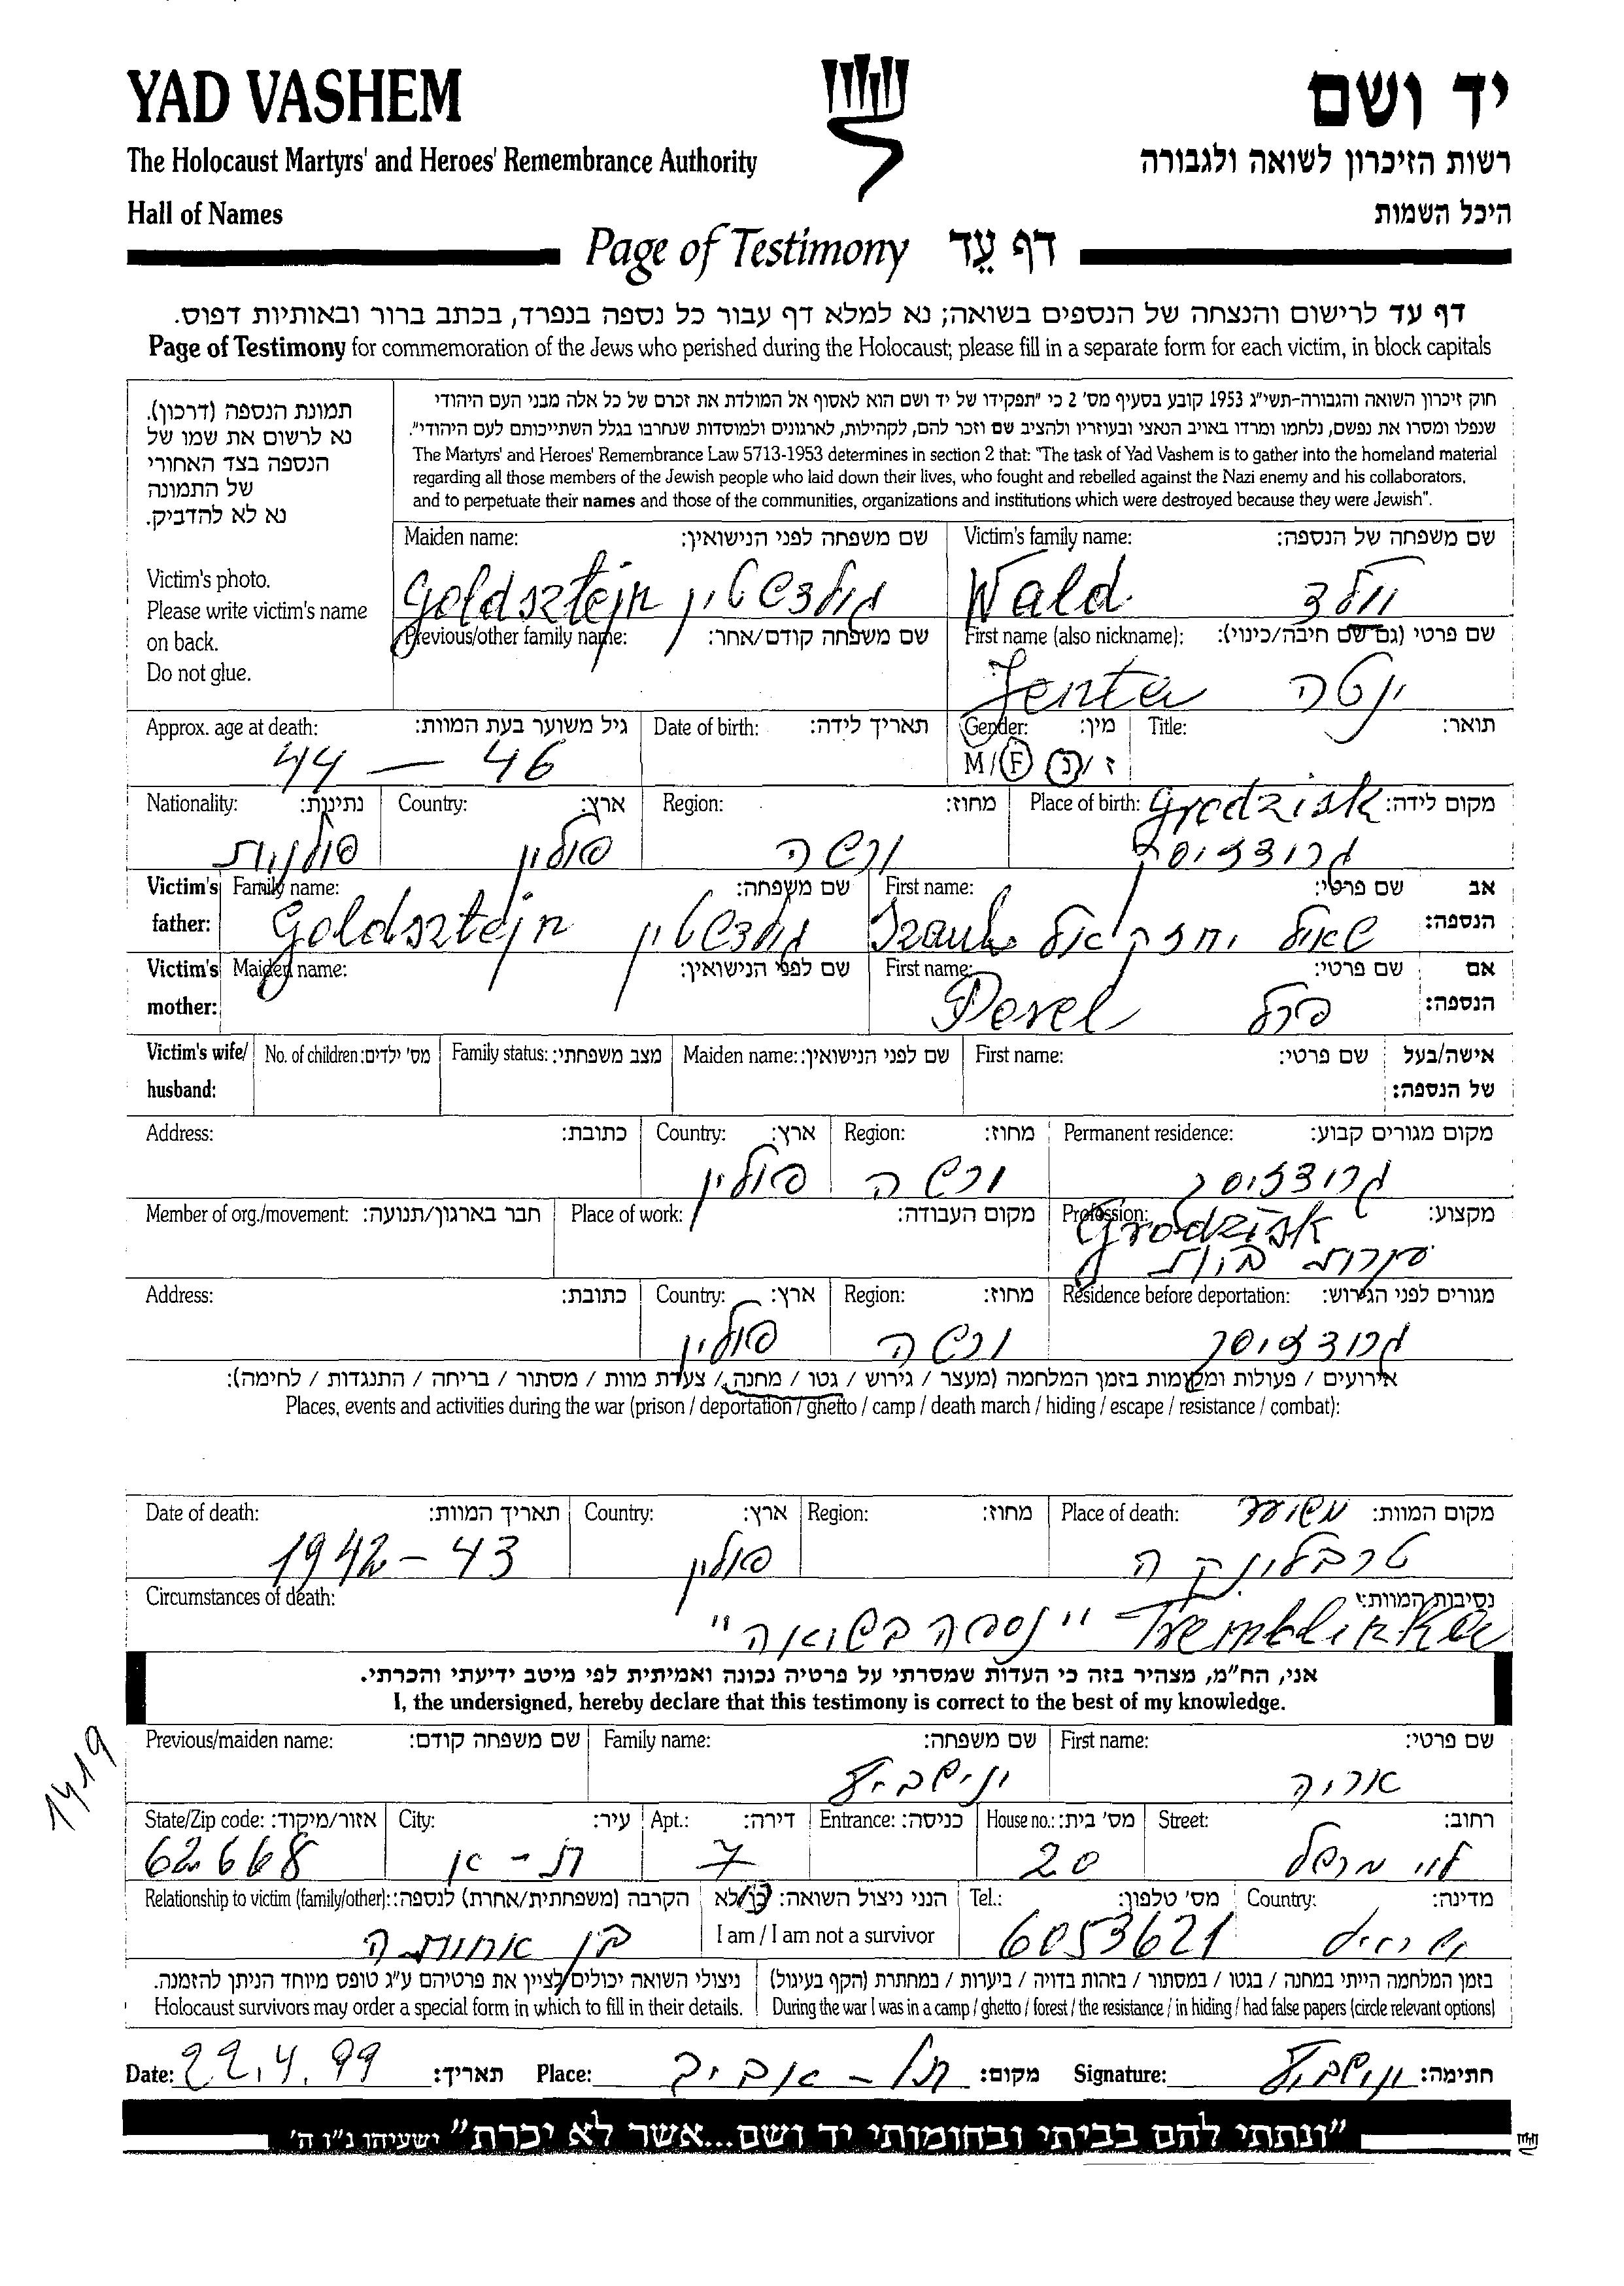 YAD VASHEM
יד ושם
The Holocaust Martyrs' and Heroes' Remembrance Authority
רשות הזיכרון לשואה ולגבורה
Hall of Names
היכל השמות
Page of Testimony דף עֵד
דף עד לרישום והנצחה של הנספים בשואה; נא למלא דף עבור כל נספה בנפרד, בכתב ברור ובאותיות דפוס.
Page of Testimony for commemoration of the Jews who perished during the Holocaust; please fill in a separate form for each victim, in block capitals
תמונת הנספה (דרכון).
נא לרשום את שמו של
הנספה בצד האחורי
של התמונה
נא לא להדביק.
Victim's photo.
Please write victim's name
on back.
Do not glue.
חוק זיכרון השואה והגבורה-תשי"ג 1953 קובע בסעיף מס' 2 כי "תפקידו של יד ושם הוא לאסוף אל המולדת את זכרם של כל אלה מבני העם היהודי
שנפלו ומסרו את נפשם, נלחמו ומרדו באויב הנאצי ובעוזריו ולהציב שם וזכר להם, לקהילות, לארגונים ולמוסדות שנחרבו בגלל השתייכותם לעם היהודי".
The Martyrs' and Heroes' Remembrance Law 5713-1953 determines in section 2 that: "The task of Yad Vashem is to gather into the homeland material
regarding all those members of the Jewish people who laid down their lives, who fought and rebelled against the Nazi enemy and his collaborators,
and to perpetuate their names and those of the communities, organizations and institutions which were destroyed because they were Jewish".
Maiden name: שם משפחה לפני הנישואין:
Goldsztejn גולדשטיין
Victim's family name: שם משפחה של הנספה:
Wald ולד
Previous/other family name: שם משפחה קודם/אחר:
First name (also nickname): שם פרטי (גם שם חיבה/כינוי):
Jenta ינטה
Approx. age at death: גיל משוער בעת המוות:
44 — 46
Date of birth: תאריך לידה:
Gender: מין:
M/F ז/נ
Title: תואר:
Nationality: נתינות:
פולניות
Country: ארץ:
פולין
Region: מחוז:
ורשה
Place of birth: מקום לידה:
Grodzisk
גרודז'יסק
Victim's father: אב הנספה:
Family name: שם משפחה:
Goldsztejn גולדשטיין
First name: שם פרטי:
שאול יחזקאל
Victim's mother: אם הנספה:
Maiden name: שם לפני הנישואין:
First name: שם פרטי:
Perel פרל
Victim's wife/ husband: אישה/בעל של הנספה:
No. of children: מס' ילדים:
Family status: מצב משפחתי:
Maiden name: שם לפני הנישואין:
First name: שם פרטי:
Address: כתובת:
Country: ארץ:
פולין
Region: מחוז:
ורשה
Permanent residence: מקום מגורים קבוע:
גרודז'יסק
Grodzisk
Member of org./movement: חבר בארגון/תנועה:
Place of work: מקום העבודה:
Profession: מקצוע:
עקרת בית
Address: כתובת:
Country: ארץ:
פולין
Region: מחוז:
ורשה
Residence before deportation: מגורים לפני הגירוש:
גרודז'יסק
אירועים / פעולות ומקומות בזמן המלחמה (מעצר / גירוש / גטו / מחנה / צעדת מוות / מסתור / בריחה / התנגדות / לחימה):
Places, events and activities during the war (prison / deportation / ghetto / camp / death march / hiding / escape / resistance / combat):
Date of death: תאריך המוות:
1942 – 43
Country: ארץ:
פולין
Region: מחוז:
Place of death: מקום המוות:
משוער
טרבלינקה
Circumstances of death: נסיבות המוות:
Tremblinka "נספה בשואה"
אני, הח"מ, מצהיר בזה כי העדות שמסרתי על פרטיה נכונה ואמיתית לפי מיטב ידיעתי והכרתי.
I, the undersigned, hereby declare that this testimony is correct to the best of my knowledge.
1419
Previous/maiden name: שם משפחה קודם:
Family name: שם משפחה:
First name: שם פרטי:
אריה
State/Zip code: אזור/מיקוד:
62668
City: עיר:
ת-א
Apt.: דירה:
7
Entrance: כניסה:
House no.: מס' בית:
20
Street: רחוב:
Relationship to victim (family/other): הקרבה (משפחתית/אחרת) לנספה:
בן אחותה
הנני ניצול השואה: כן/לא
I am / I am not a survivor
Tel.: מס' טלפון:
6053621
Country: מדינה:
ישראל
ניצולי השואה יכולים לציין את פרטיהם ע"ג טופס מיוחד הניתן להזמנה.
Holocaust survivors may order a special form in which to fill in their details.
בזמן המלחמה הייתי במחנה / בגטו / במסתור / בזהות בדויה / ביערות / במחתרת (הקף בעיגול)
During the war I was in a camp / ghetto / forest / the resistance / in hiding / had false papers (circle relevant options)
Date: 22.4.99 תאריך: Place: תל-אביב מקום: Signature: חתימה:
"ונתתי להם בביתי ובחומותי יד ושם...אשר לא יכרת" ישעיהו נ"ו ה'